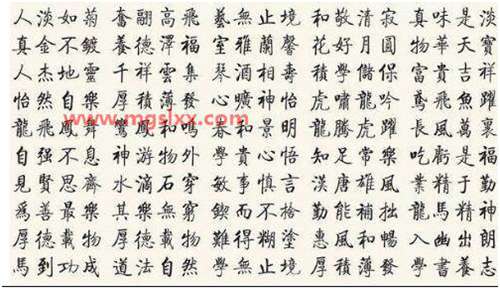 人淡如菊 奮翮高飛 藝無止境 和敬清寂 真味是淡
真金不鍍 養德澤福 室雅蘭馨 花好月圓 物華天寶
人杰地靈 千祥雲集 琴酒相壽 學儲 富貴吉祥
怡然自樂 厚積薄發 心曠神怡 虎嘯龍吟 鳶飛魚躍
龍飛鳳舞 鸞鳳和鳴 春和景明 龍騰虎躍 長風萬裏
自强不息 神游物外 和貴心悟 知足常樂 吃虧是福
見賢思齊 水滴石穿 敏事慎言 漢唐雄風 業精于勤
爲善最樂 其樂無窮 鍥而不捨 勤能補拙 龍馬精神
厚德載物 厚德載物 難得糊塗 惠風和暢 入幽出朗
馬到功成 道法自然 學無止境 厚積薄發 學書養志
www.mgslxx.com